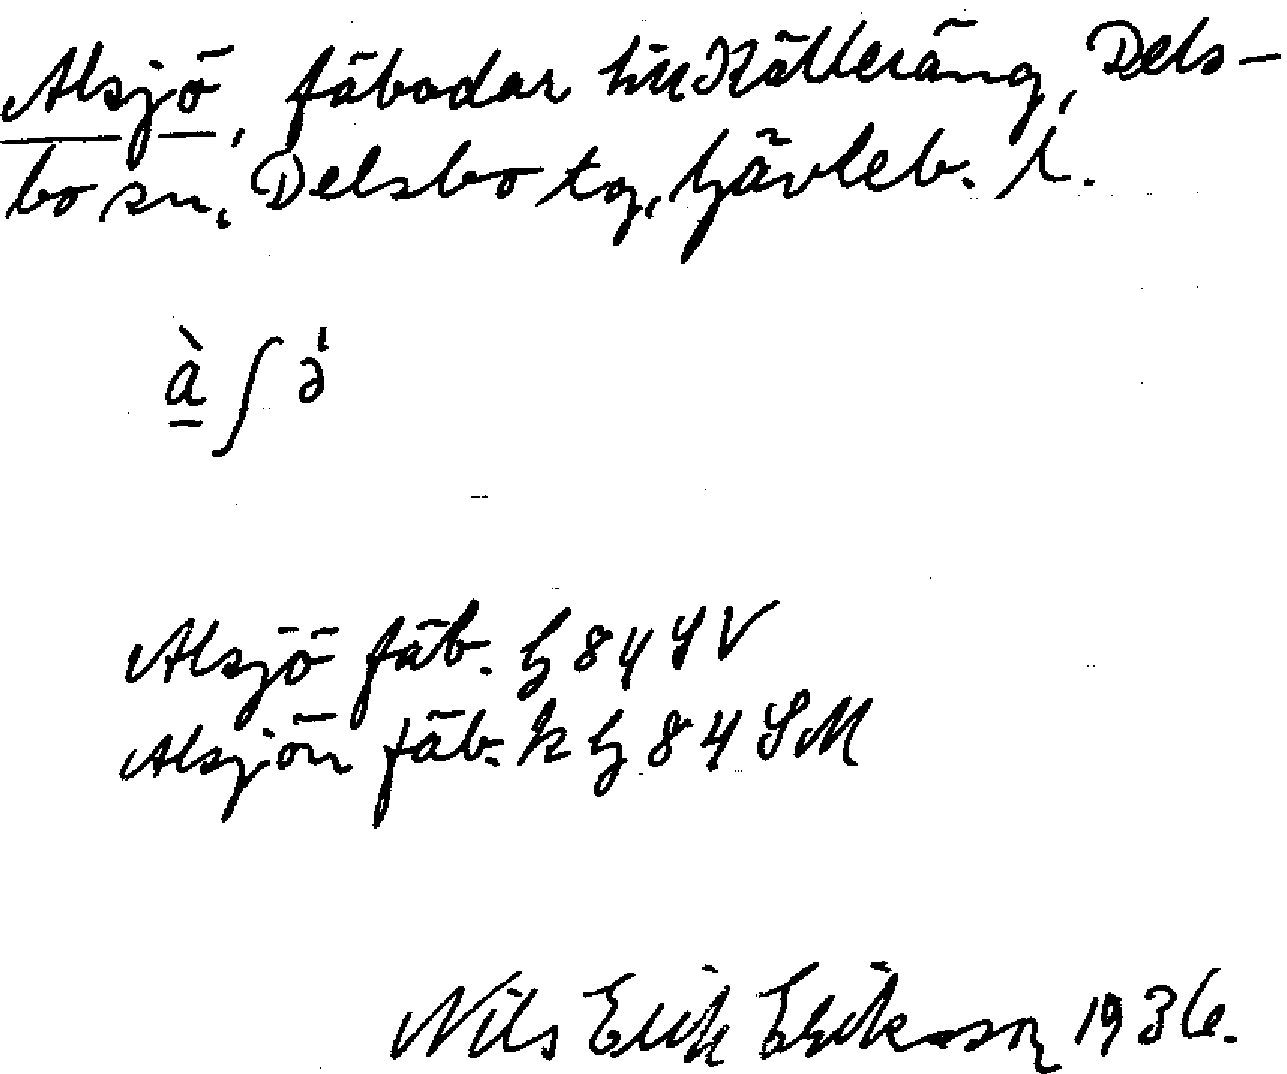 Alsjö, fäbodar till Källeräng, Dels-
bo sn, Delsbo tg, Gävleb. l.
à̱ʃə̍
Alsjö fäb. G 84 SV
Alsjön fäb. k G 84 SM
Nils Erik Erikson 1936.